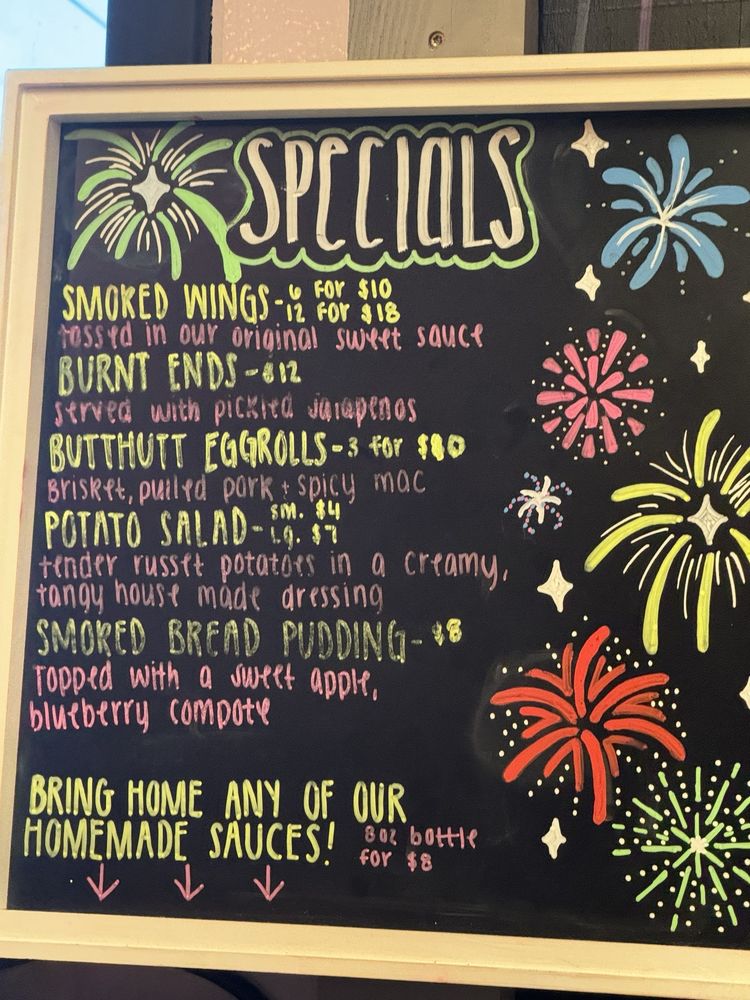 SPECIALS
SMOKED WINGS - 6 FOR $10
12 FOR $18
tossed in our original sweet sauce
BURNT ENDS - $12
served with pickled jalapenos
BUTTHUTT EGGROLLS - 3 for $10
Brisket, pulled pork + spicy mac
POTATO SALAD - Sm. $4
Lg. $7
tender russet potatoes in a creamy,
tangy house made dressing
SMOKED BREAD PUDDING - $8
Topped with a sweet apple,
blueberry compote
BRING HOME ANY OF OUR
HOMEMADE SAUCES! 8oz bottle
for $8